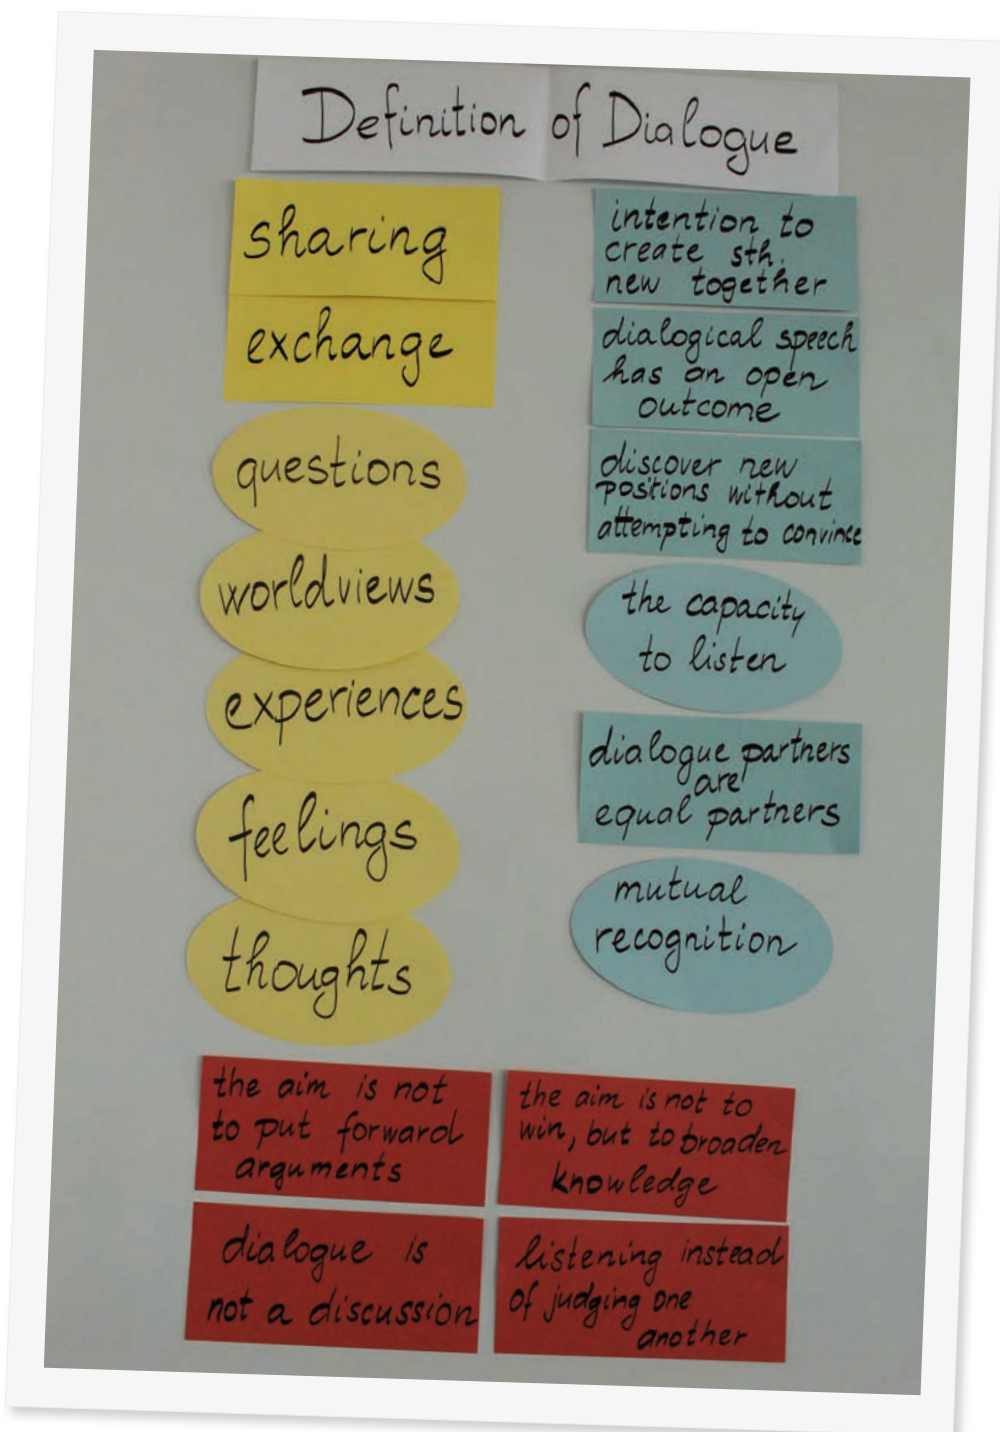 Definition of Dialogue
sharing
exchange
questions
worldviews
experiences
feelings
thoughts
intention to
create sth.
new together
dialogical speech
has an open
outcome
discover new
positions without
attempting to convince
the capacity
to listen
dialogue partners
are
equal partners
mutual
recognition
the aim is not
to put forward
arguments
the aim is not to
win, but to broaden
knowledge
dialogue is
not a discussion
listening instead
of judging one
another